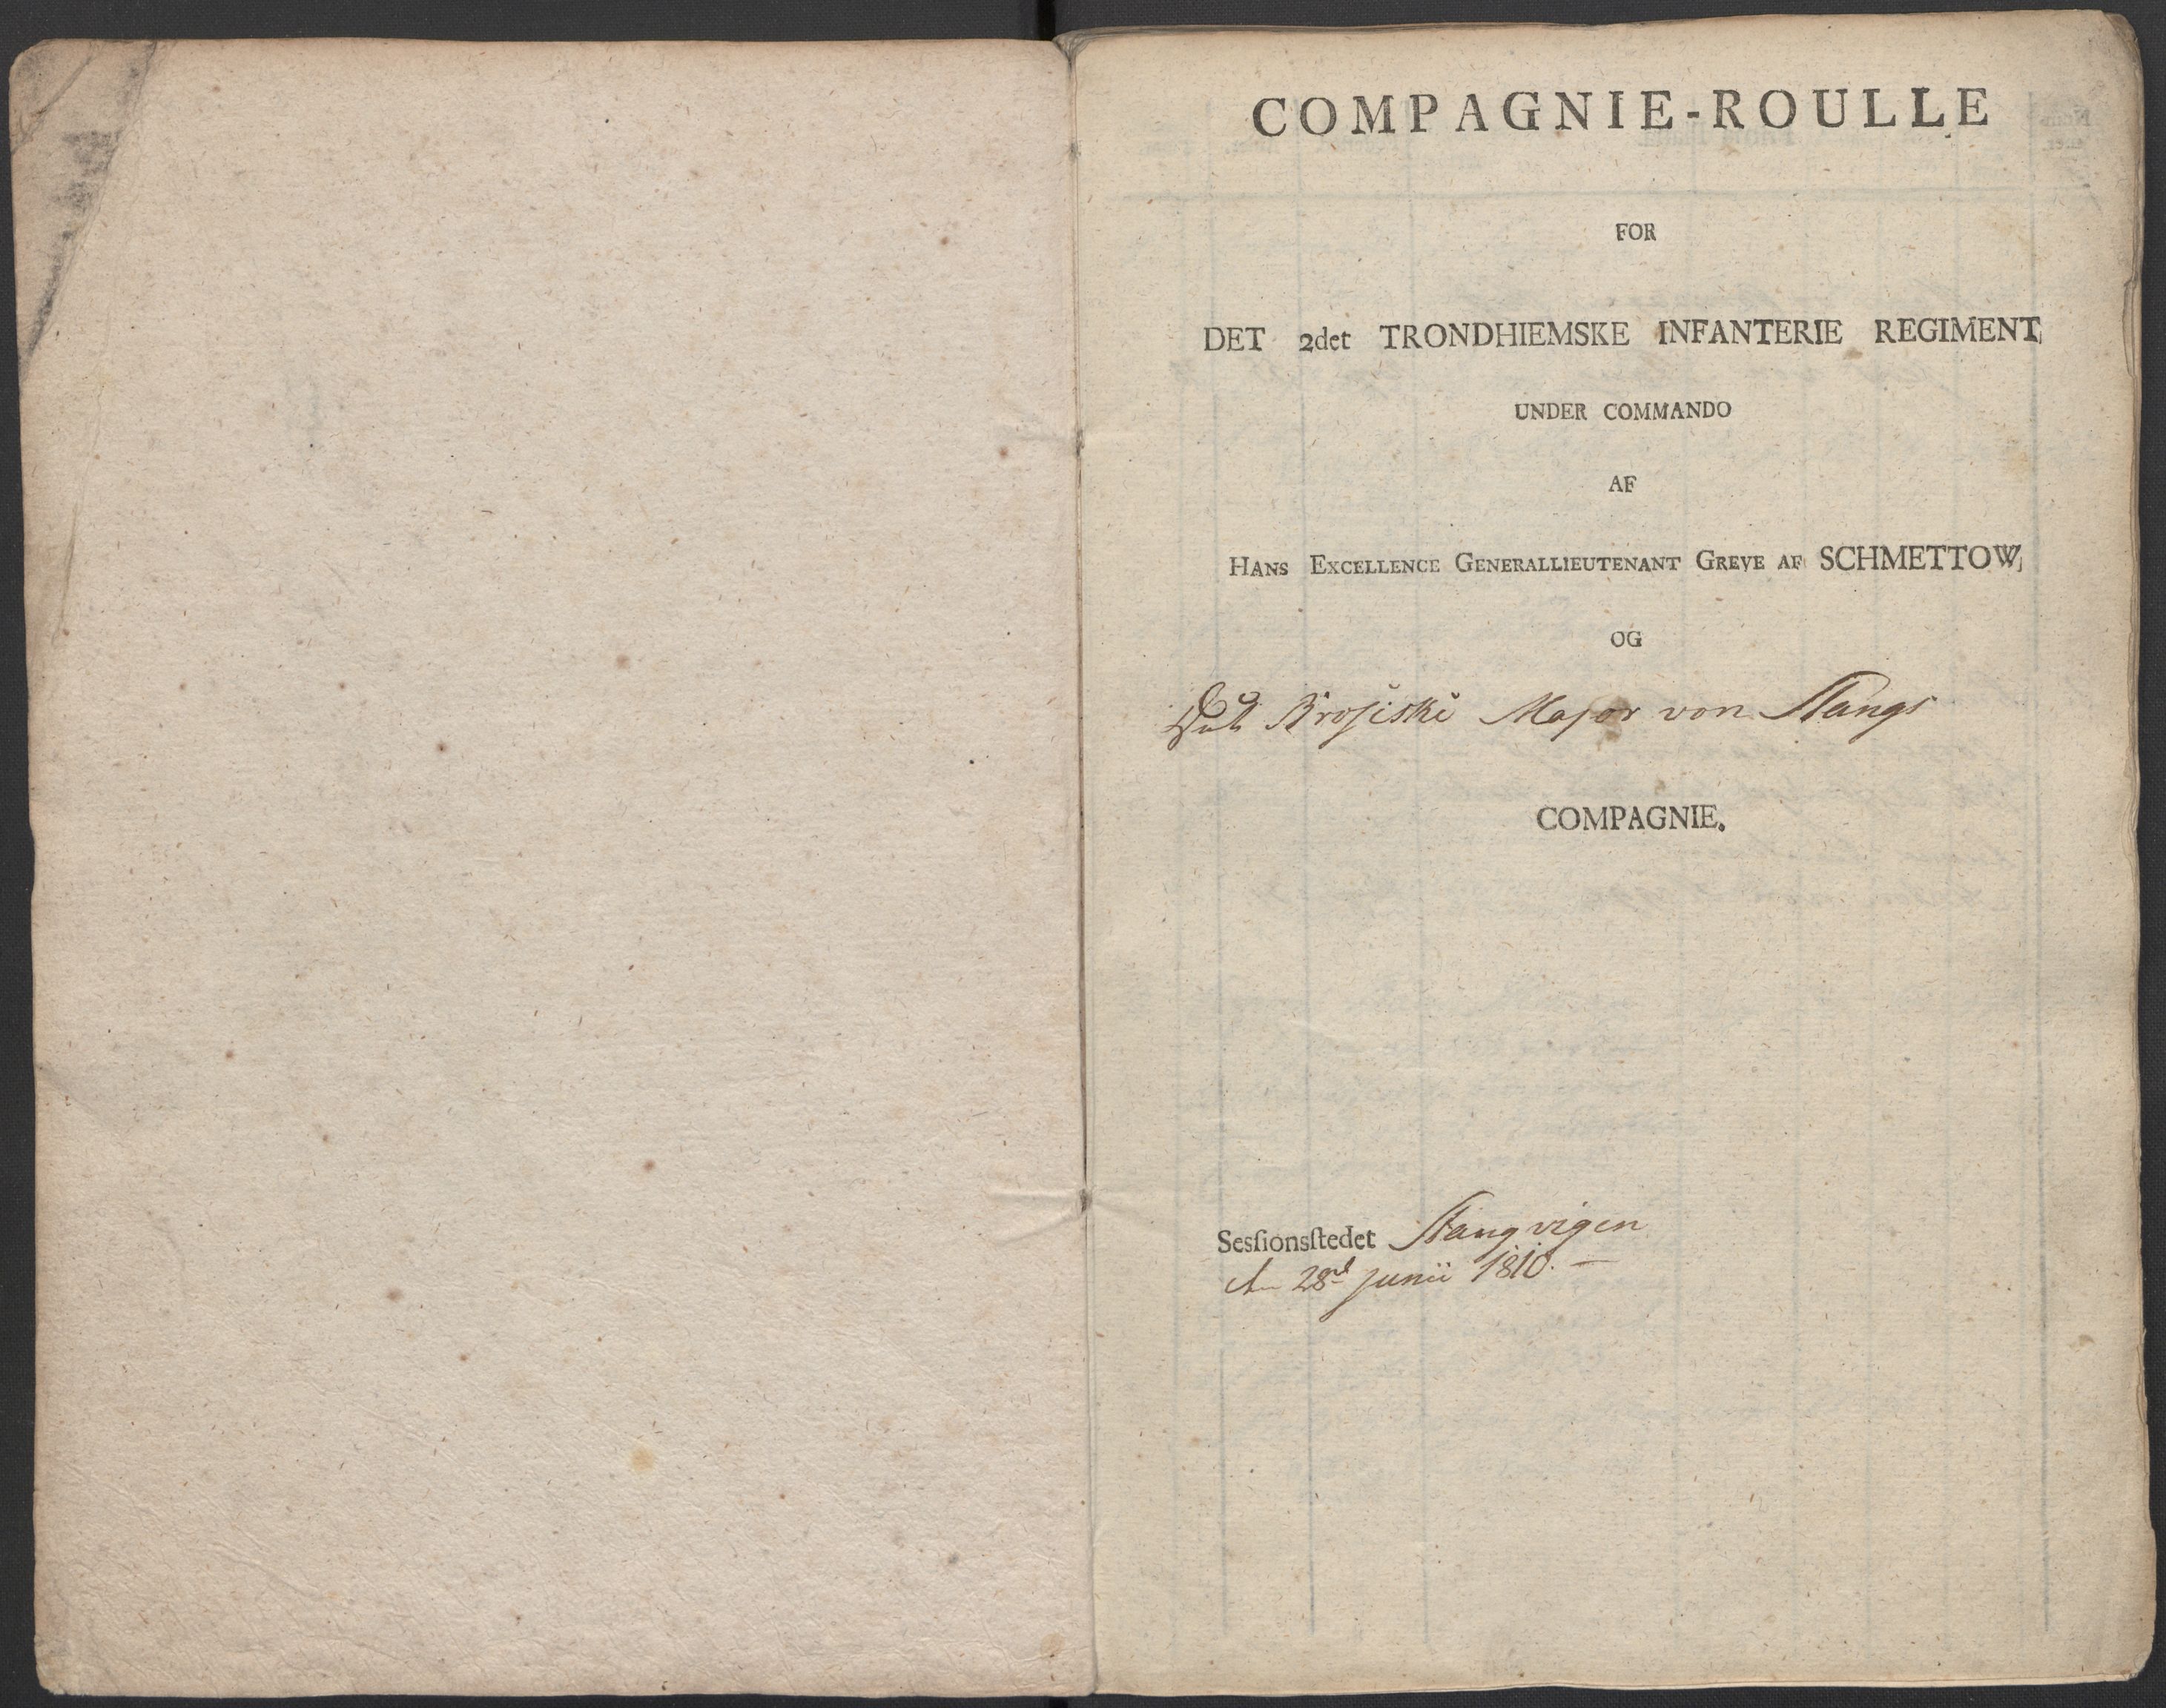 COMPAGNIE-ROULLE
FOR
DET 2det TRONDHIEMSKE INFANTERIE REGIMENT
UNDER COMMANDO
AF
HANS EXCELLENCE GENERALLIEUTENANT GREVE AF SCHMETTOW,
OG
Major von Stangs
COMPAGNIE.
Sesſionsſtedet Stangvigen
28de junii 1810. —